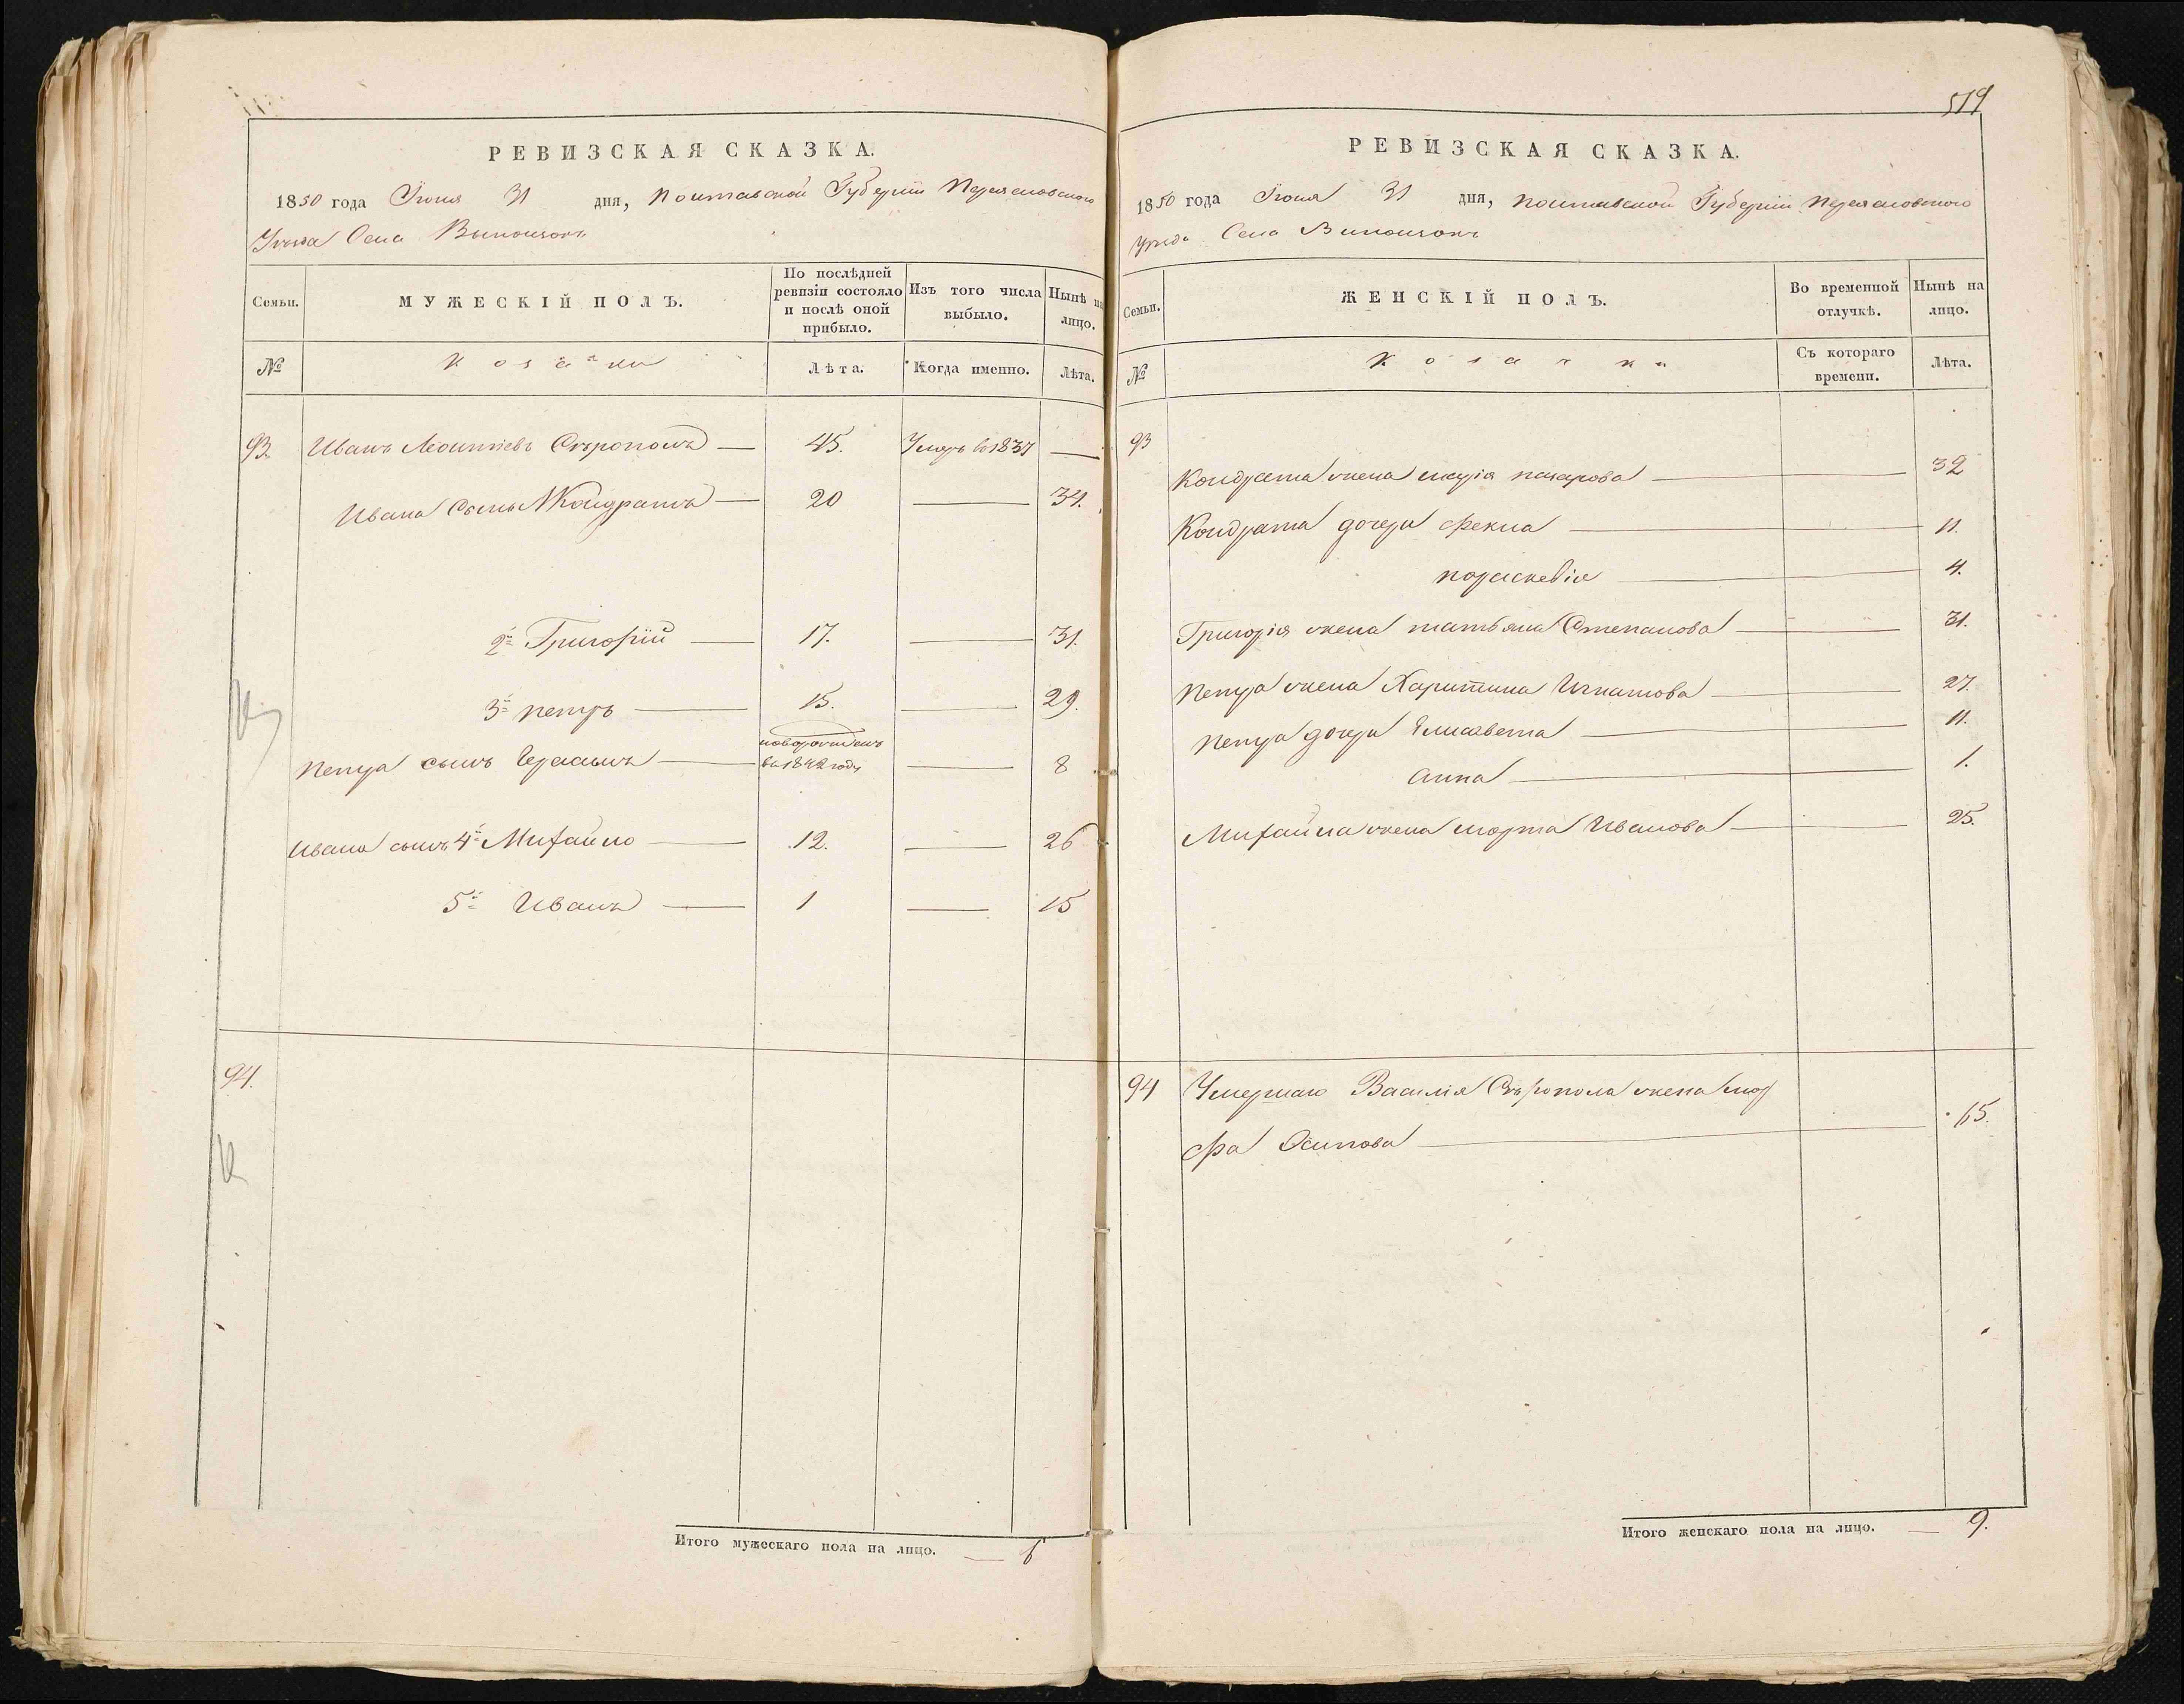 РЕВИЗСКАЯ СКАЗКА.
1850 года Іюня 31 дня, Полтавской Губерніи Переясловского
Уезда Села Выползокъ
Семьи. МУЖЕСКІЙ ПОЛЪ. По послѣдней ревизіи состояло и послѣ оной прибыло. Изъ того числа выбыло. Нынѣ на лицо.
№ Козаки Лѣта. Когда именно. Лѣта.
93. Иванъ Леонтіевъ Сѣрополъ — 45. Умеръ в 1837 —
Ивана Сынъ 1 Кондратъ — 20 — 34.
2й Григорій — 17. — 31.
3й петръ — 15. — 29.
Петра сынъ Герасимъ — новорожденъ в 1842 году — 8
Ивана сынъ 4й Михайло — 12. — 26
5й Иванъ — 1 — 15
94.
Итого мужескаго пола на лицо. — 6
519
РЕВИЗСКАЯ СКАЗКА.
1850 года Іюня 31 дня, Полтавской Губерніи Переясловского
Уезда Села Виползокъ
Семьи. ЖЕНСКІЙ ПОЛЪ. Во временной отлучкѣ. Нынѣ на лицо.
№ Козачки Съ котораго времени. Лѣта.
93
Кондрата жена марія назарова — 32
Кондрата дочери Фекла — 11.
параскевія — 4.
Григорія жена татьяна Степанова — 31.
Петра жена Харитина Игнатова — 27.
Петра дочери Елисавета — 11.
Анна — 1.
Михайла жена марта Иванова — 25.
94 Умершаго Василія Сѣропола жена мар
фа Осипова — 65.
Итого женскаго пола на лицо. — 9.